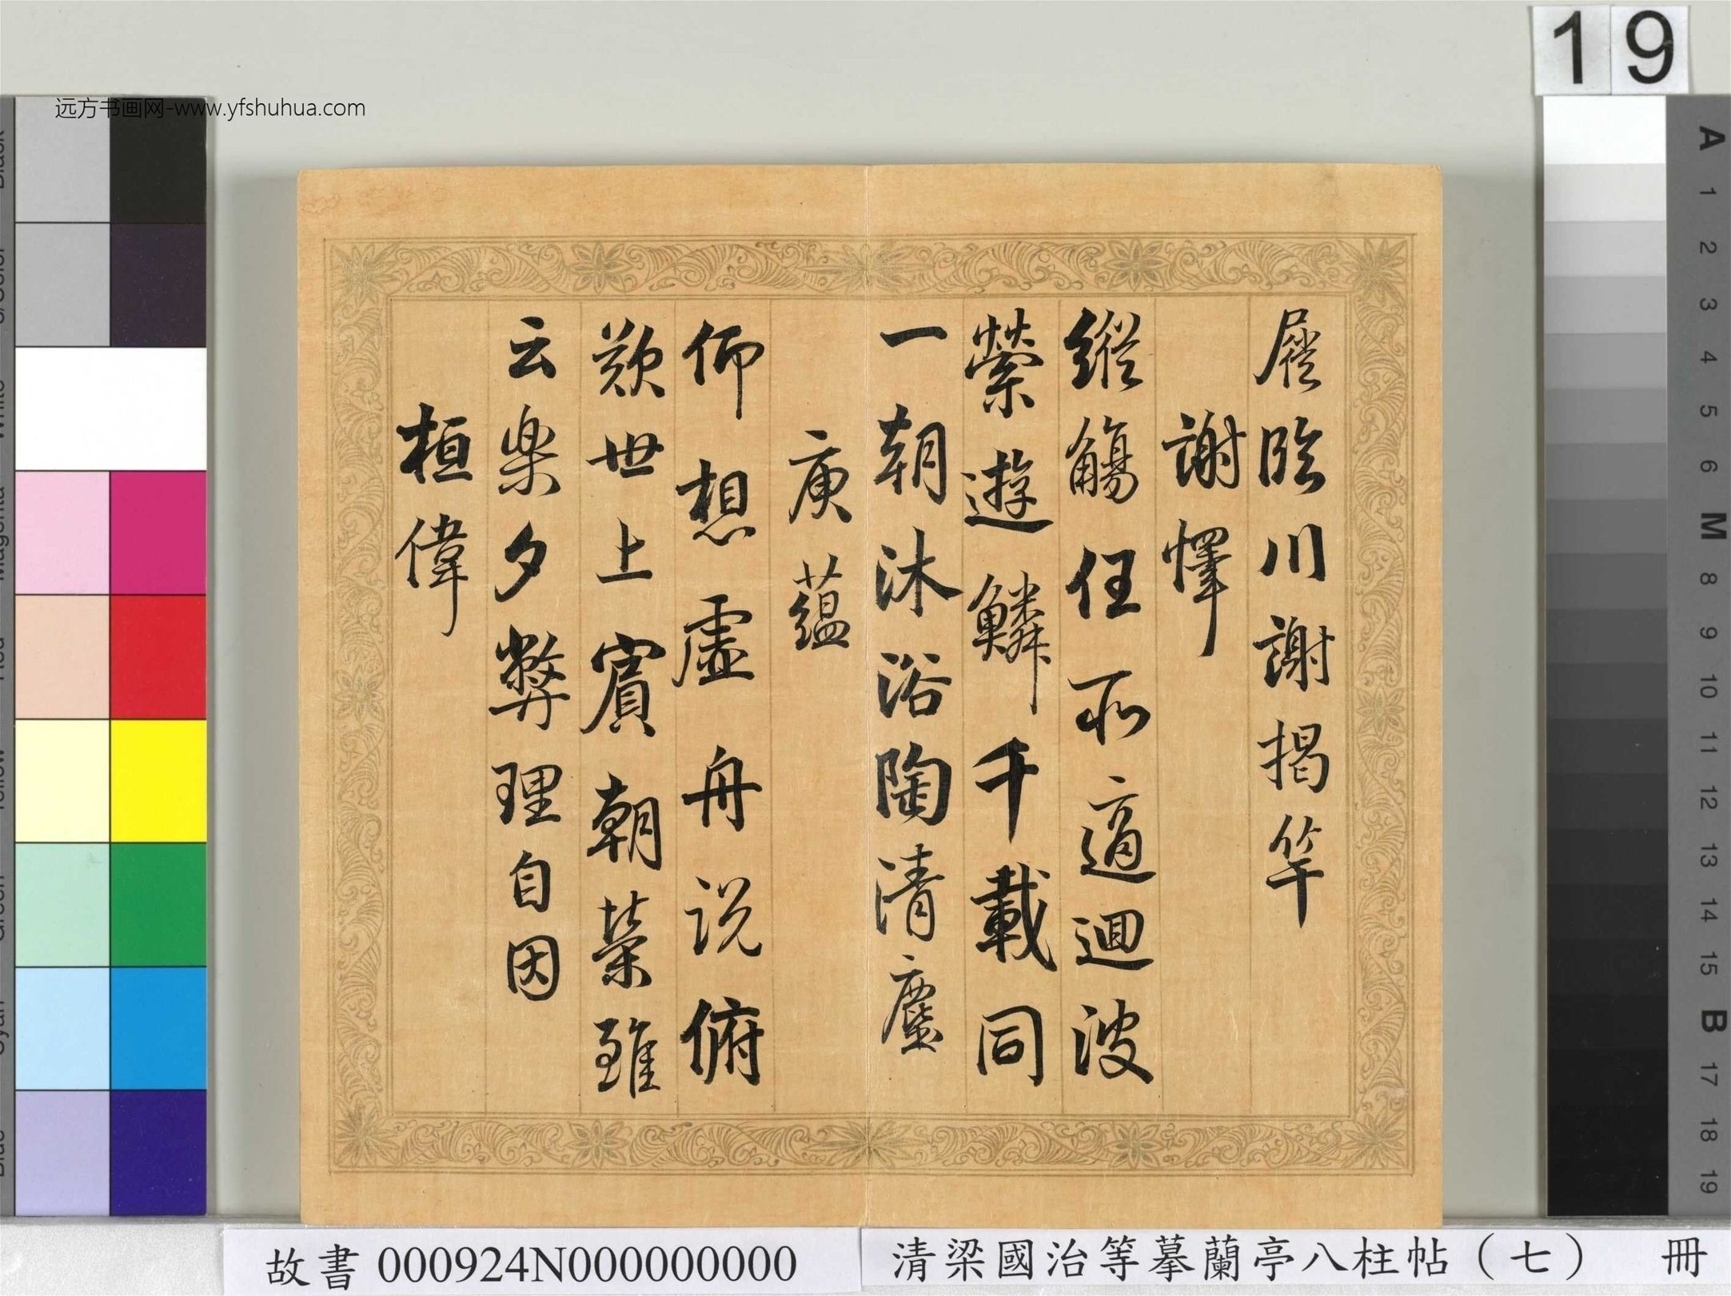 19
远方书画网-www.yfshuhua.com
屐臨川謝揭竿
謝懌
縱觴任所適迴波
縈遊鱗千載同
一朝沐浴陶清塵
庾蘊
仰想虛舟說俯
歎世上賓朝榮雖
云樂夕弊理自因
桓偉
A
1
2
3
4
5
6
M
8
9
10
11
12
13
14
15
B
17
18
19
故書 000924N000000000
清梁國治等摹蘭亭八柱帖（七） 冊